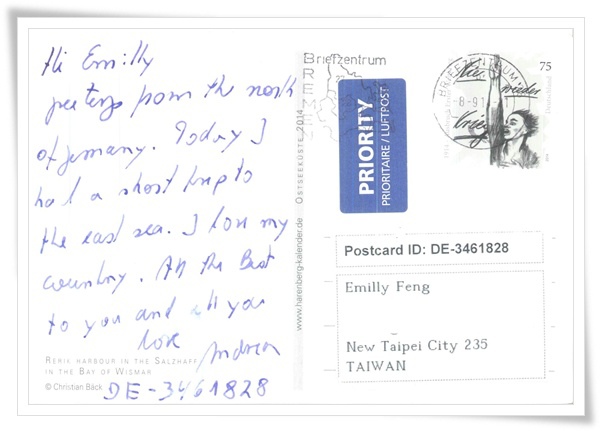 Hi Emilly
greetings from the north
of germany. Today I
had a short trip to
the east sea. I love my
country. All the Best
to you and all you
love Andrea
RERIK HARBOUR IN THE SALZHAFF
IN THE BAY OF WISMAR
© Christian Bäck
DE-3461828
www.harenberg-kalender.de OSTSEEKÜSTE 2014
Briefzentrum
BREMEN
PRIORITY
PRIORITAIRE / LUFTPOST
BRIEFZENTRUM
-8-91
75
Deutschland
nie wieder
krieg
Postcard ID: DE-3461828
Emilly Feng
New Taipei City 235
TAIWAN